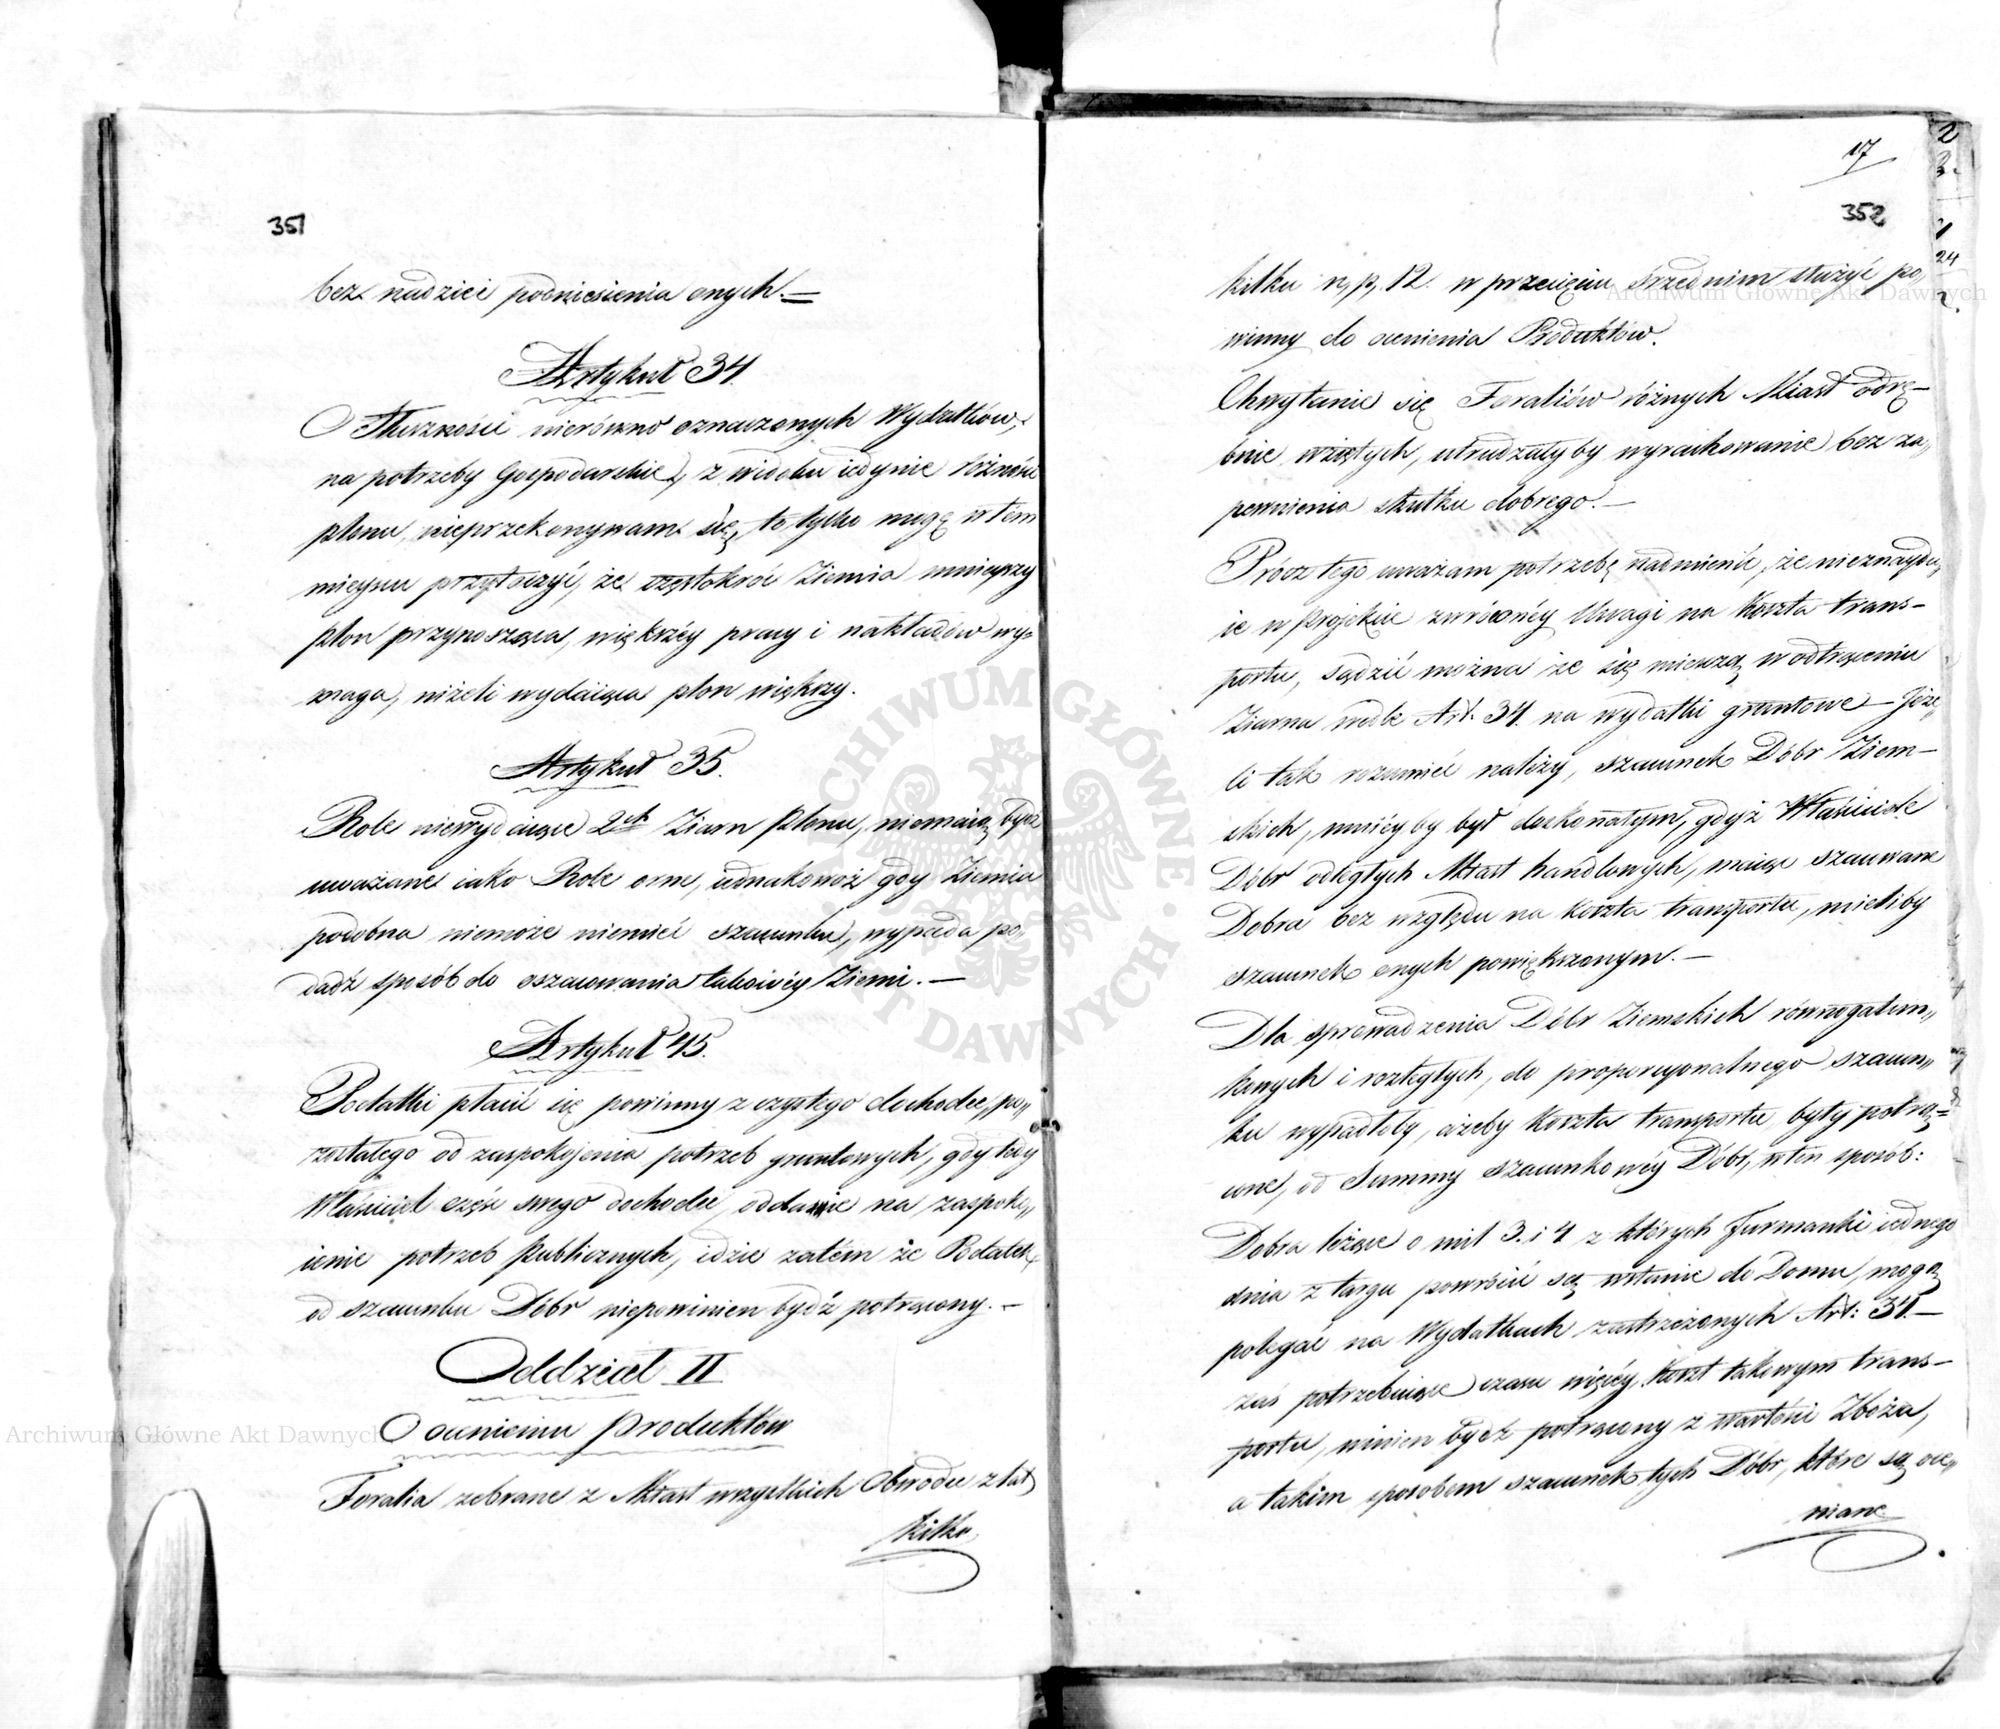 351
bez nadziei podniesienia onych. —
Artykuł 34.
O słuszności nierówno oznaczonych Wydatków,
na potrzeby Gospodarskie, z widoku iedynie różności
plonu, nieprzekonywam się, to tylko mogę w tém
mieyscu przytoczyć, że częstokroć Ziemia mnieyszy
plon przynosząca, większéy pracy i nakładów wy=
maga, niżeli wydaiąca plon większy.
Artykuł 35.
Role niewydaiące 2ch Ziarn plonu, niemaią bydź
uważane iako Role orne, iednakowoż gdy Ziemia
podobna niemoże niemieć szacunku, wypada po„
dadź sposób do oszacowania takowéy Ziemi. —
Artykuł 45.
Podatki płacić się powinny z czystego dochodu, po„
zostałego od zaspokojenia potrzeb gruntowych, gdy tedy
Właściciel część swego dochodu oddaie na zaspoko„
ienie potrzeb Publicznych, idzie zatém że Podatek
od szacunku Dóbr niepowinien bydź potrącony. —
Oddział II
O ocenieniu Produktów
Foralia zebrane z Miast wszystkich Obwodu z lat
kilku
17
352
kilku n. p. 12. w przecięciu średnim służyć po„
winny do ocenienia Produktów.
Chwytanie się Foraliów różnych Miast odrę—
bnie wziętych, utrudzałyby wyrachowanie bez za„
pewnienia skutku dobrego. —
Prócz tego uważam potrzebę nadmienić, że nieznaydu„
ie w Projekcie zwróconéy Uwagi na Koszta trans—
portu, sądzić można że się mieszczą w odtrąceniu
Ziarna wedle Art. 34. na wydatki gruntowe — Jeże„
li tak rozumieć należy, szacunek Dóbr Ziem—
skich, mniéy by był doskonałym, gdyż Właściciele
Dóbr odległych Miast handlowych, maiąc szacowane
Dobra bez względu na koszta transportu, mieliby
szacunek onych powiększonym. —
Dla sprowadzenia Dóbr Ziemskich równogatun„
kowych i rozległych, do proporcyonalnego szacun„
ku wypadłoby, ażeby Koszta transportu były potrą=
cone, od Summy szacunkowéy Dóbr, w ten sposób:
Dobra leżące o mil 3. i 4 z których Furmanki iednego
dnia z targu powrócić są wstanie do Domu, mogą
polegać na Wydatkach zastrzeżonych Art: 34. —
zaś potrzebuiące czasu więcéy, koszt takowym trans—
portu, winien bydź potrącony z wartości Zboża,
a takim sposobem szacunek tych Dóbr, które są oce„
niane
Archiwum Główne Akt Dawnych
Archiwum Główne Akt Dawnych
ARCHIWUM GŁÓWNE AKT DAWNYCH